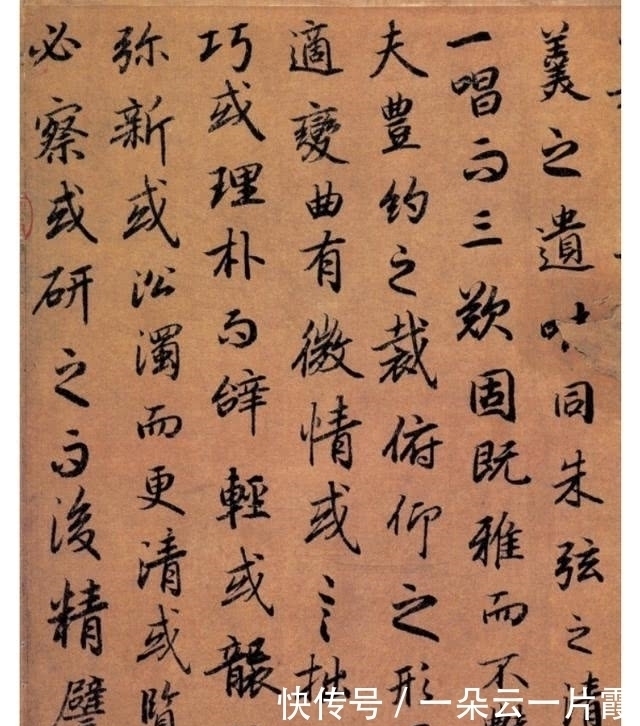 羹之遺味同朱弦之清
一唱而三歎固既雅而不
夫豐約之裁俯仰之形
適變曲有微情或言拙
巧或理朴而辭輕或襲
弥新或沿濁而更清或覽
必察或研之而後精譬
快传号/一朵云一片霞